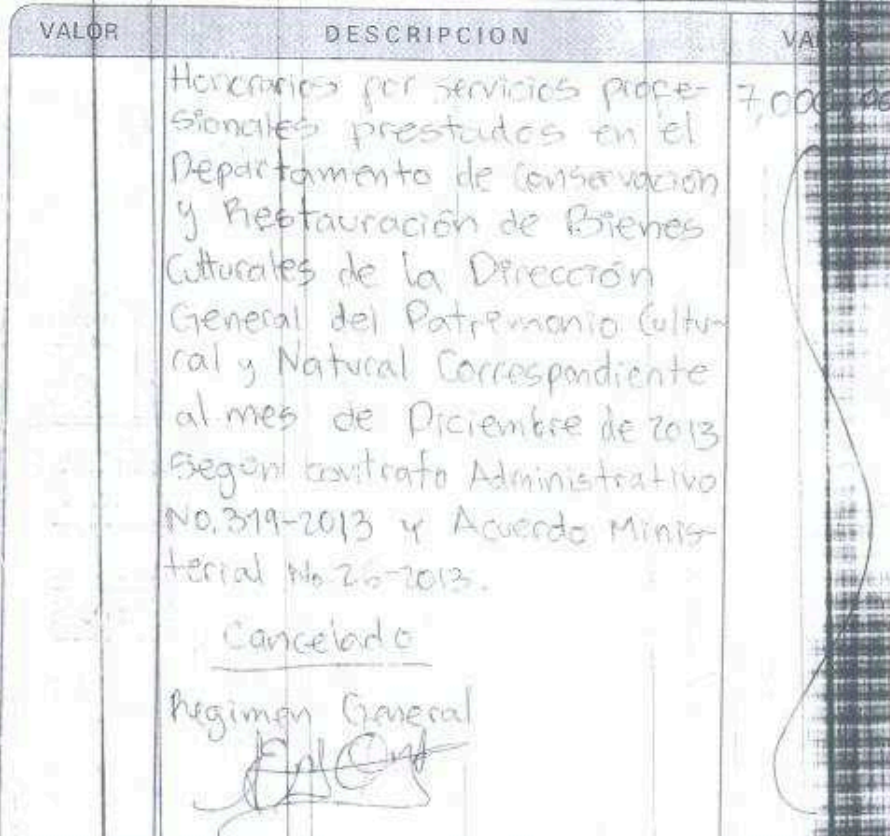 VALOR DESCRIPCION VALOR
Honorarios por servicios profe- 7,000.00
sionales prestados en el
Departamento de Conservación
y Restauración de Bienes
Culturales de la Dirección
General del Patrimonio Cultu-
ral y Natural Correspondiente
al mes de Diciembre de 2013
Según contrato Administrativo
No. 319-2013 y Acuerdo Minis-
terial No 26-2013.
Cancelado
Regimen General